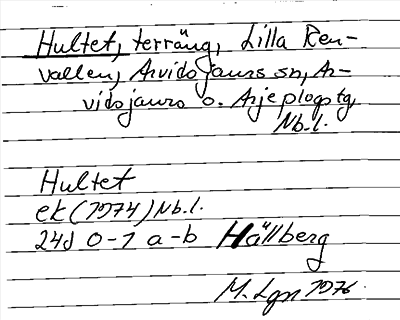 Hultet, terräng, Lilla Ren-
vallen, Arvidsjaurs sn, Ar-
vidsjaurs o. Arjeplogs tg
Nb.l.
Hultet
ek (1974) Nb.l.
24J 0-1 a-b Hällberg
M. Lgn 1976.